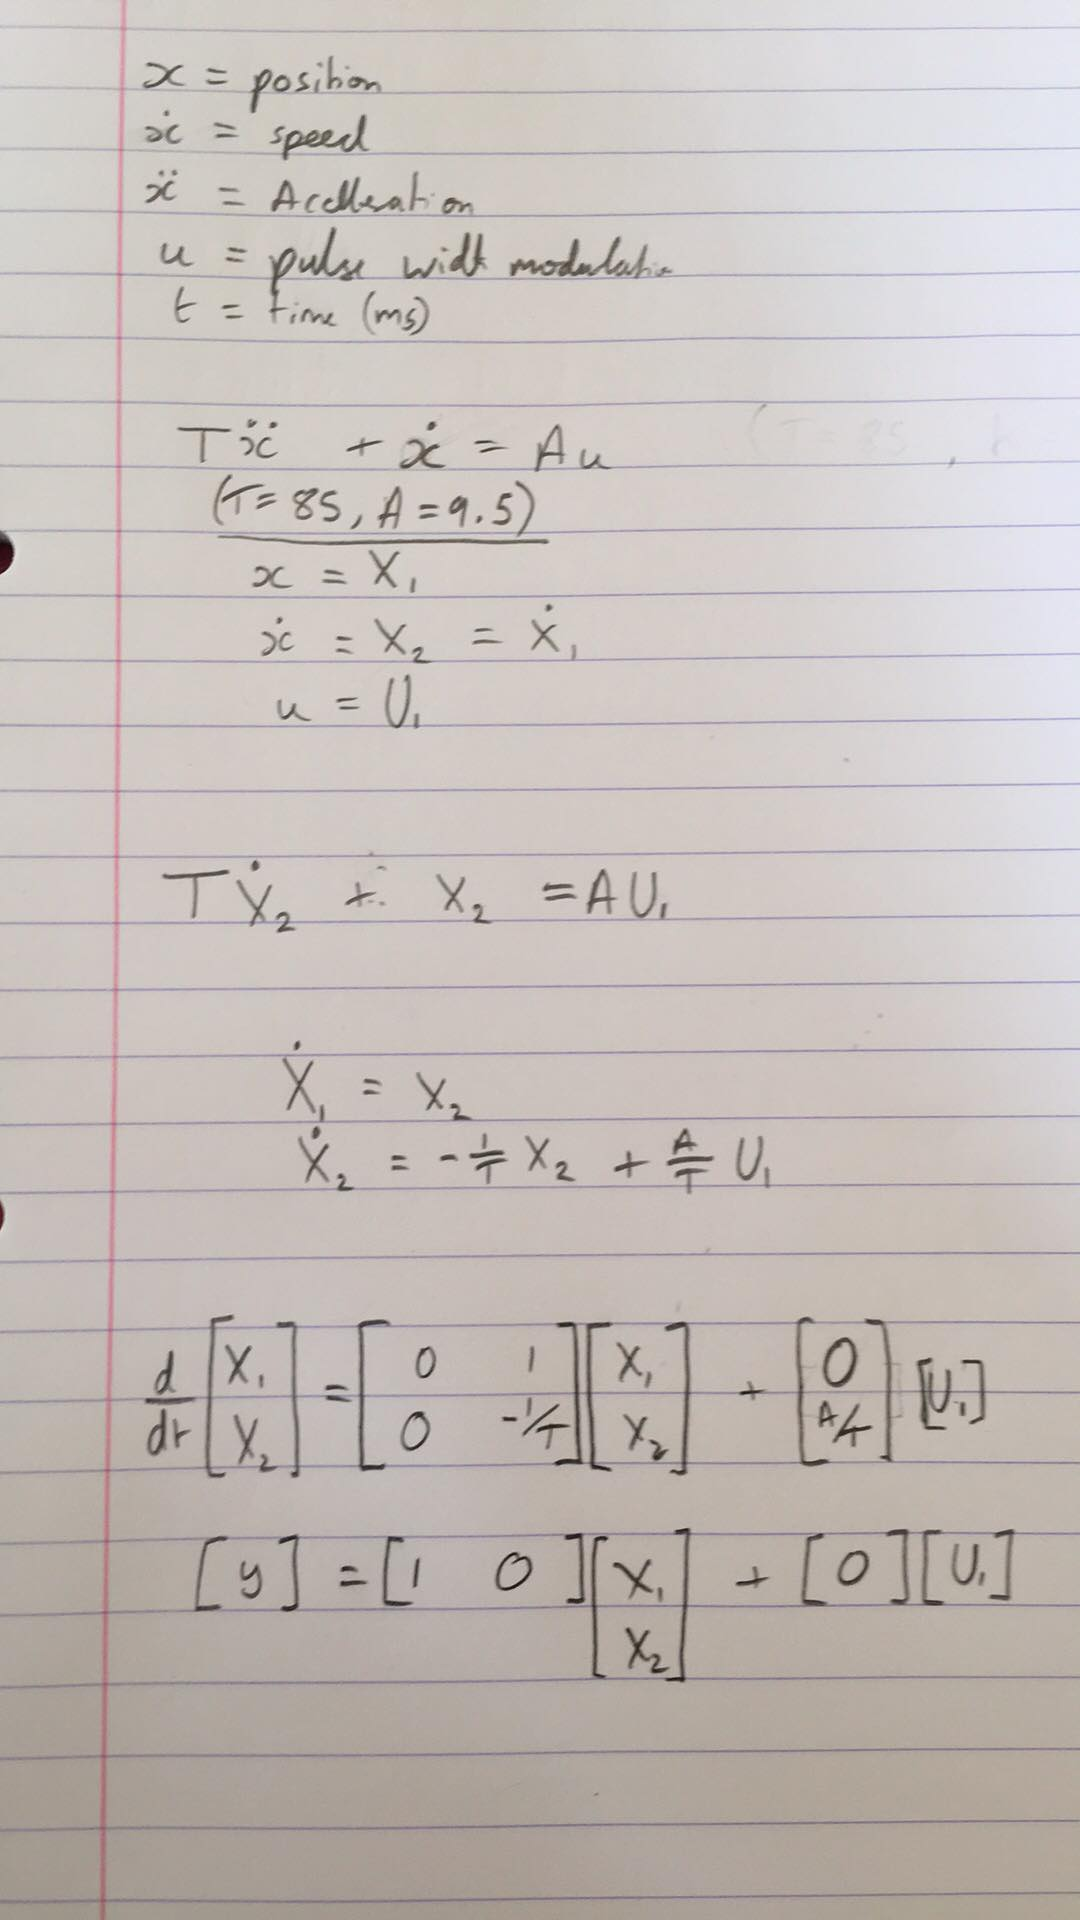 x = position
ẋ = speed
ẍ = Acelleration
u = pulse width modulation
t = time (ms)
Tẍ + ẋ = Au
(T = 85, A = 9.5)
x = X₁
ẋ = X₂ = Ẋ₁
u = U₁
TẊ₂ + X₂ = AU₁
Ẋ₁ = X₂
Ẋ₂ = -1/T X₂ + A/T U₁
d/dt [X₁ X₂] = [0 1 0 -1/T] [X₁ X₂] + [0 A/T] [U₁]
[y] = [1 0] [X₁ X₂] + [0] [U₁]